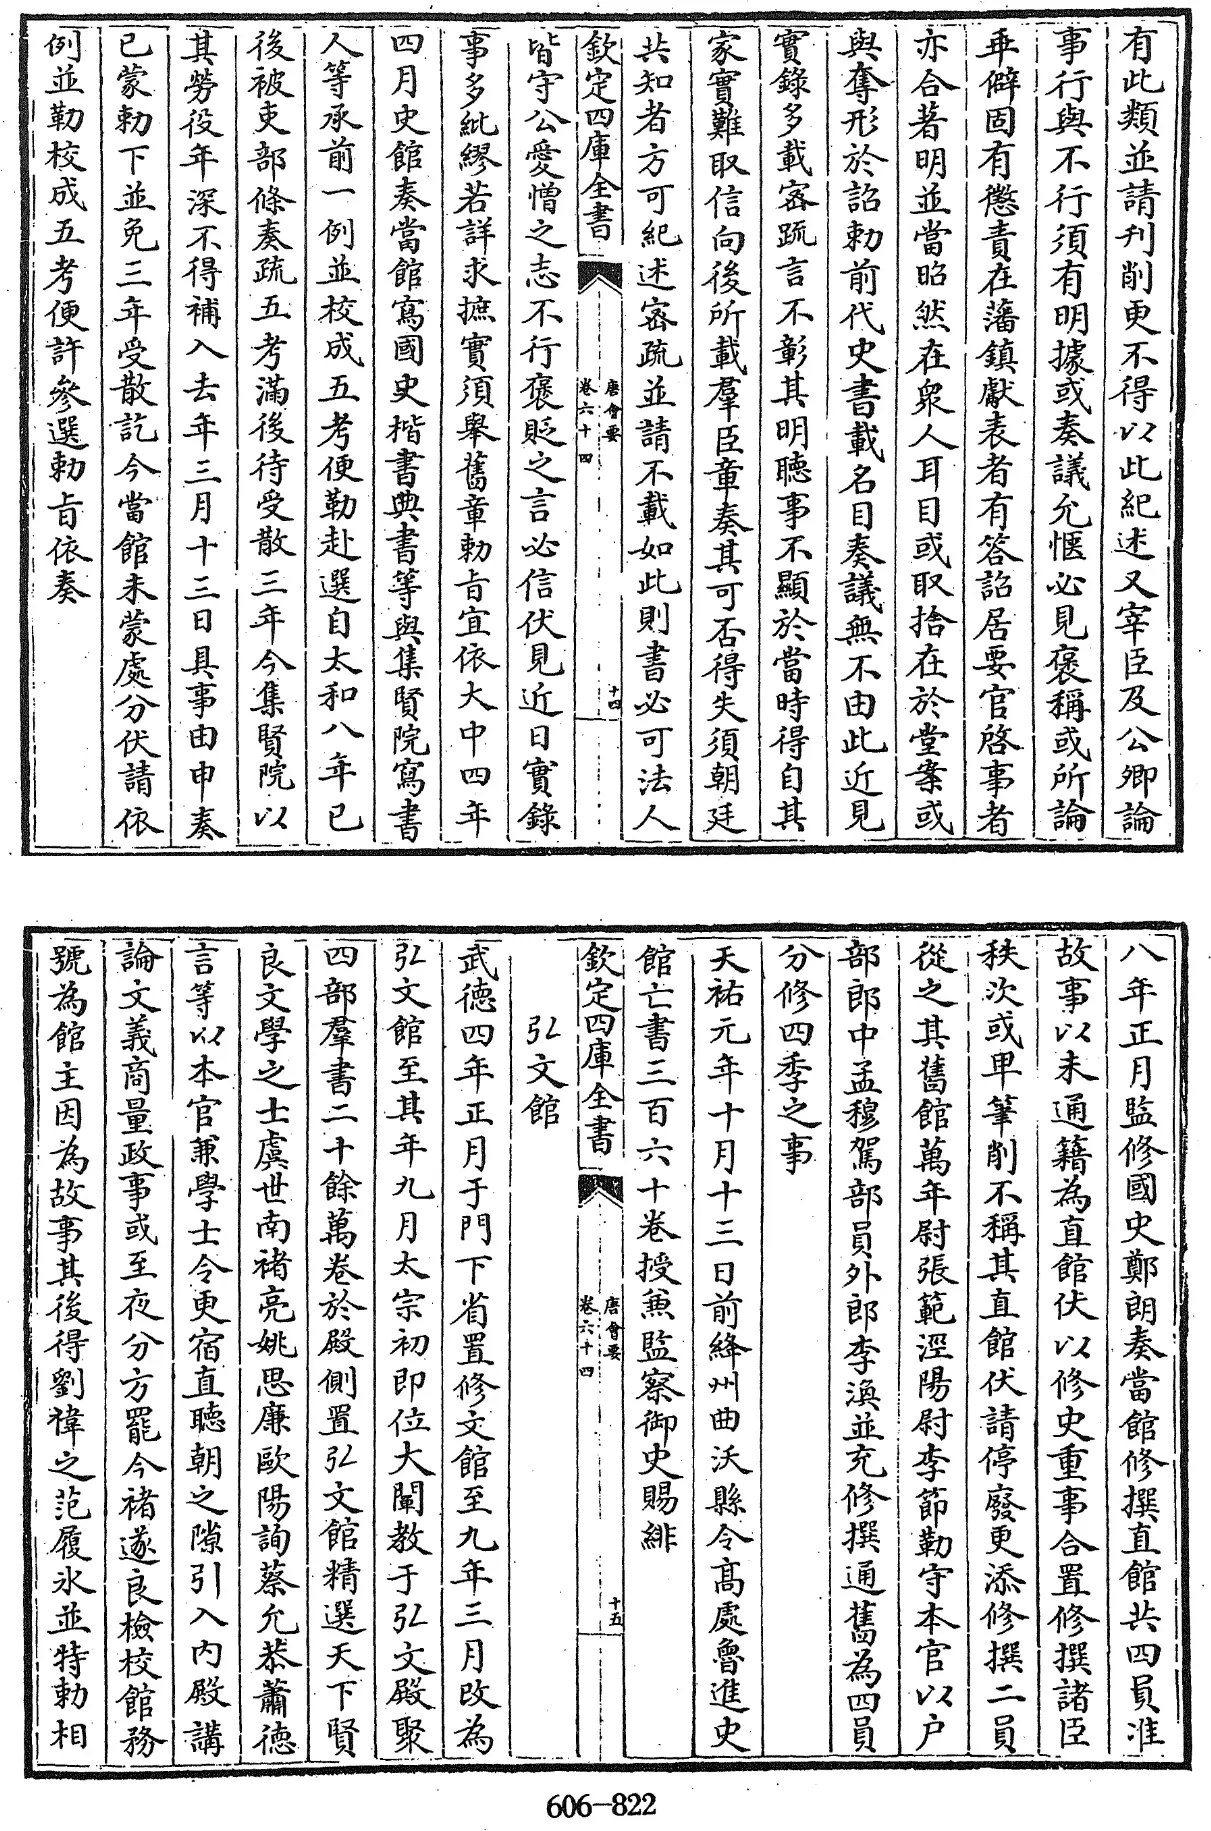 有此類並請刋削更不得以此紀述又宰臣及公卿論
事行與不行須有明據或奏議允愜必見褒稱或所論
乖僻固有懲責在藩鎮獻表者有答詔居要官啓事者
亦合著明並當昭然在衆人耳目或取捨在於堂案或
與奪形於詔勅前代史書載名目奏議無不由此近見
實錄多載宻疏言不彰其明聽事不顯於當時得自其
家實難取信向後所載羣臣章奏其可否得失須朝廷
共知者方可紀述宻疏並請不載如此則書必可法人
欽定四庫全書
唐會要
卷六十四
十四
皆守公愛憎之志不行褒貶之言必信伏見近日實錄
事多紕繆若詳求摭實須舉舊章勅旨宜依大中四年
四月史館奏當館寫國史楷書典書等與集賢院寫書
人等承前一例並校成五考便勒赴選自太和八年已
後被吏部條奏疏五考滿後待受散三年今集賢院以
其勞役年深不得補入去年三月十三日具事由申奏
已蒙勅下並免三年受散訖今當館未蒙處分伏請依
例並勒校成五考便許參選勅旨依奏
八年正月監修國史鄭朗奏當館修撰直館共四員准
故事以未通籍為直館伏以修史重事合置修撰諸臣
秩次或卑筆削不稱其直館伏請停廢更添修撰二員
從之其舊館萬年尉張範涇陽尉李節勒守本官以户
部郎中孟穆駕部員外郎李渙並充修撰通舊為四員
分修四季之事
天祐元年十月十三日前絳州曲沃縣令髙處魯進史
館亡書三百六十卷授兼監察御史賜緋
欽定四庫全書
唐會要
卷六十四
十五
弘文館
武德四年正月于門下省置修文館至九年三月改為
弘文館至其年九月太宗初即位大闡教于弘文殿聚
四部羣書二十餘萬卷於殿側置弘文館精選天下賢
良文學之士虞世南褚亮姚思廉歐陽詢蔡允恭蕭德
言等以本官兼學士令更宿直聽朝之隙引入内殿講
論文義商量政事或至夜分方罷今褚遂良檢校館務
號為館主因為故事其後得劉褘之范履氷並特勅相
606-822